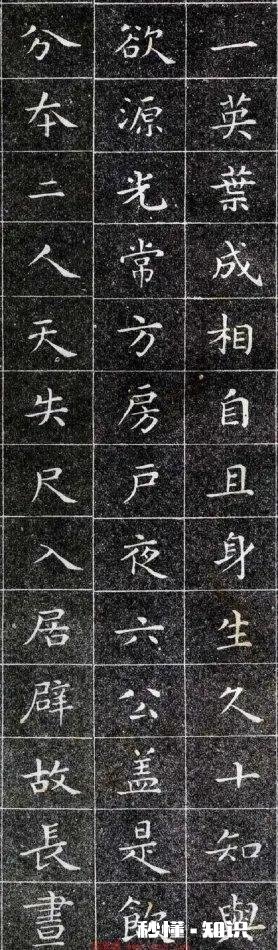 一英葉成相自且身生久十知與
欲源光常方房戶夜六公盖是飲
分夲二人天失尺入居辟故長晝
秒懂·知识